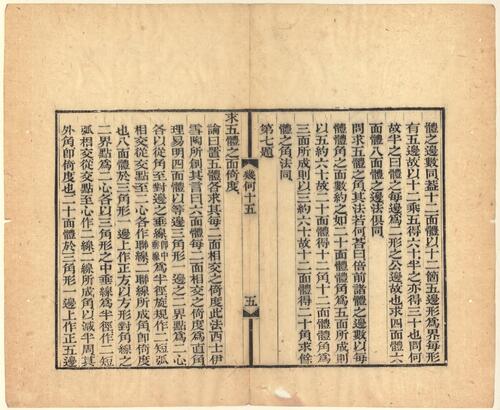 體之邊數同蓋十二面體以十二箇五邊形爲界每形
有五邊故以十二乘五得六十半之亦得三十也問何
故半之曰體之每邊爲二形之公邊故也求四面體六
面體八面體之邊法俱同
問求五體之角其法若何答曰倍前諸體之邊數以每
體體角之面數約之如二十面體體角爲五面所成則
以五約六十故二十面體得十二角十二面體體角爲
三面所成則以三約六十故十二面體得二十角求餘
體之角法同
第七題
幾何十五
五
求五體之面倚度
論曰置五體各求其每二面相交之倚度此法西士伊
雪陶所創其言曰六面體每二面相交之倚度爲直角
理易明四面體以等邊三角形一邊之二界點爲二心
各以從角至對邊之垂線爲半徑旋規作二短弧
相交從交點至二心各作聯線二聯線所成角卽倚度
也八面體於三角形一邊上作正方以方形對角線之
二界點爲二心各以三角形之中垂線爲半徑作二短
弧相交從交點作二線二線所成角以減半周其
外角卽倚度也二十面體於三角形一邊上作正五邊